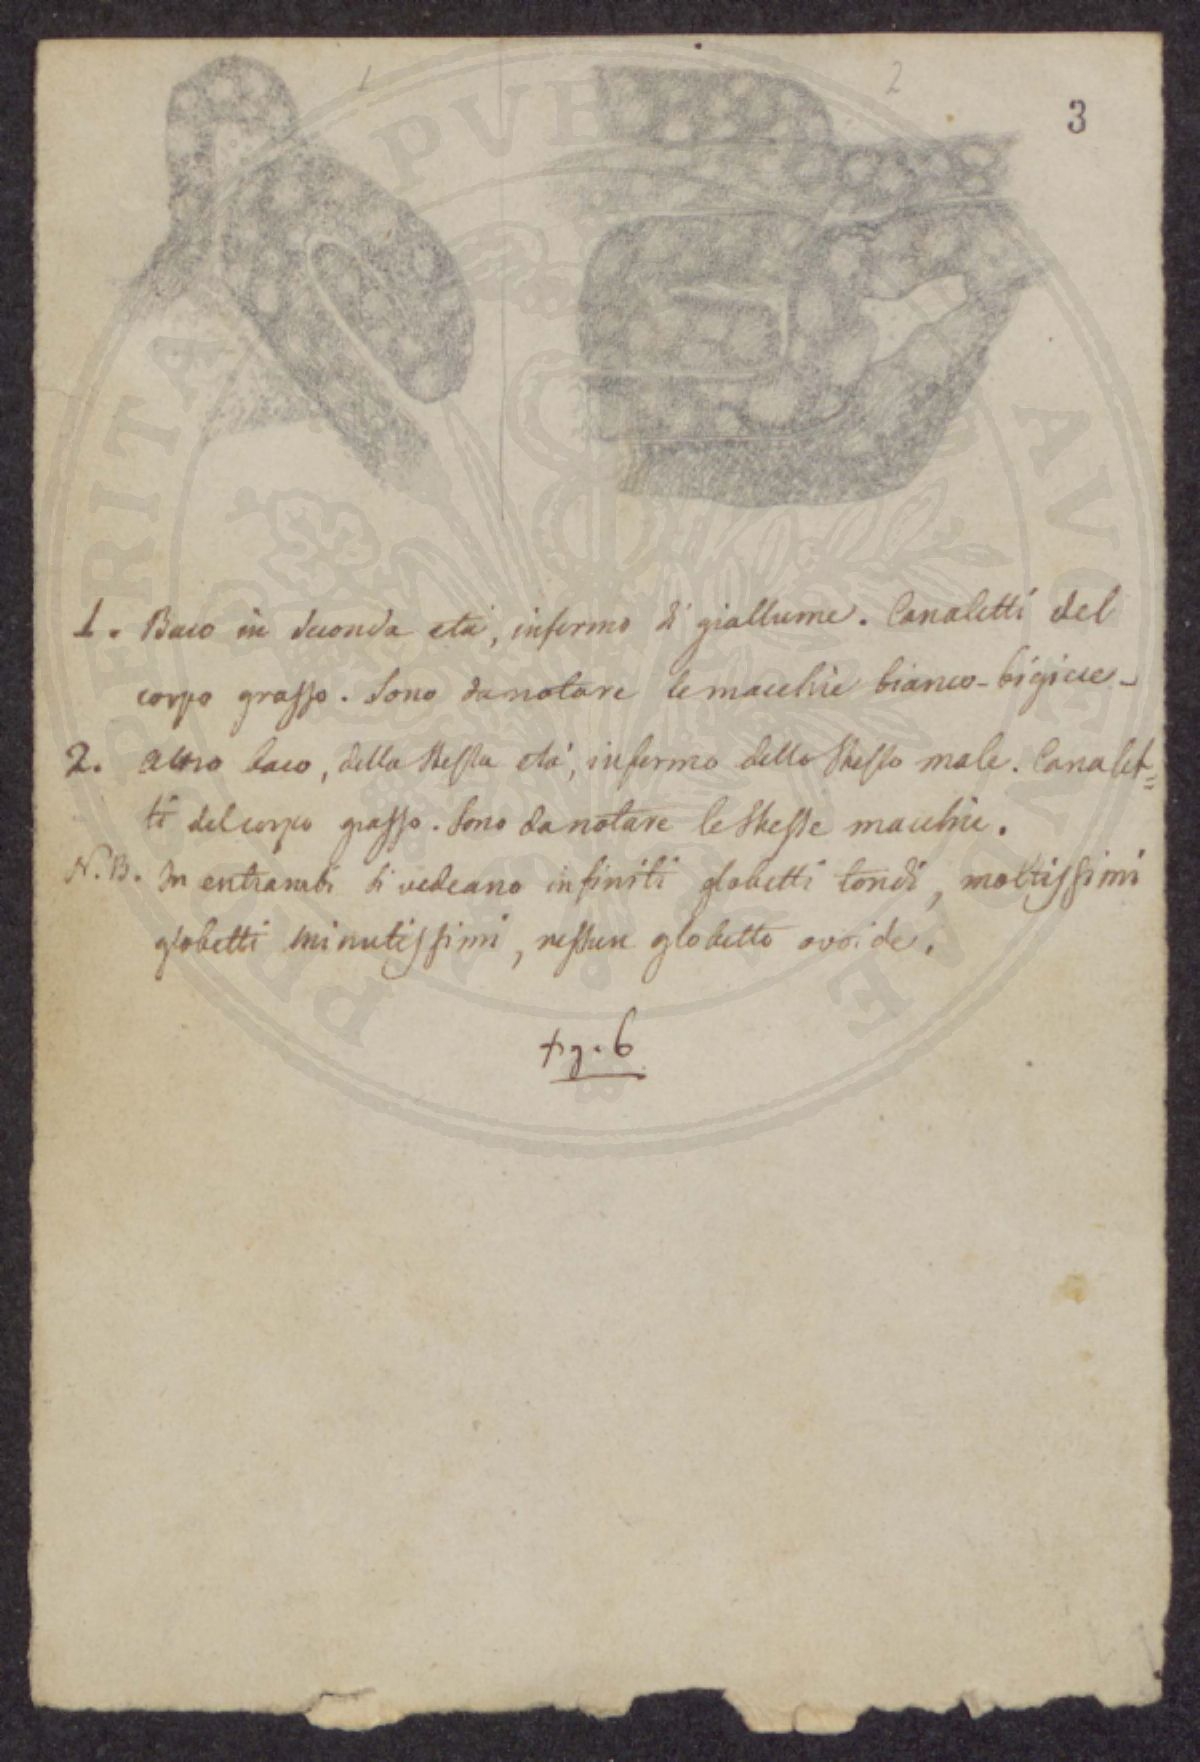 1
2
3
1. Baco in seconda età, infermo di giallume. Canaletti del
corpo grasso. Sono da notare le macchie bianco-bigicce-
2. Altro baco, della stessa età, infermo dello stesso male. Canalet=
ti del corpo grasso. Sono da notare le stesse macchie.
N.B. In entrambi si vedeano infiniti globetti tondi, moltissimi
globetti minutissimi, nessun globetto ovoide.
fig. 6